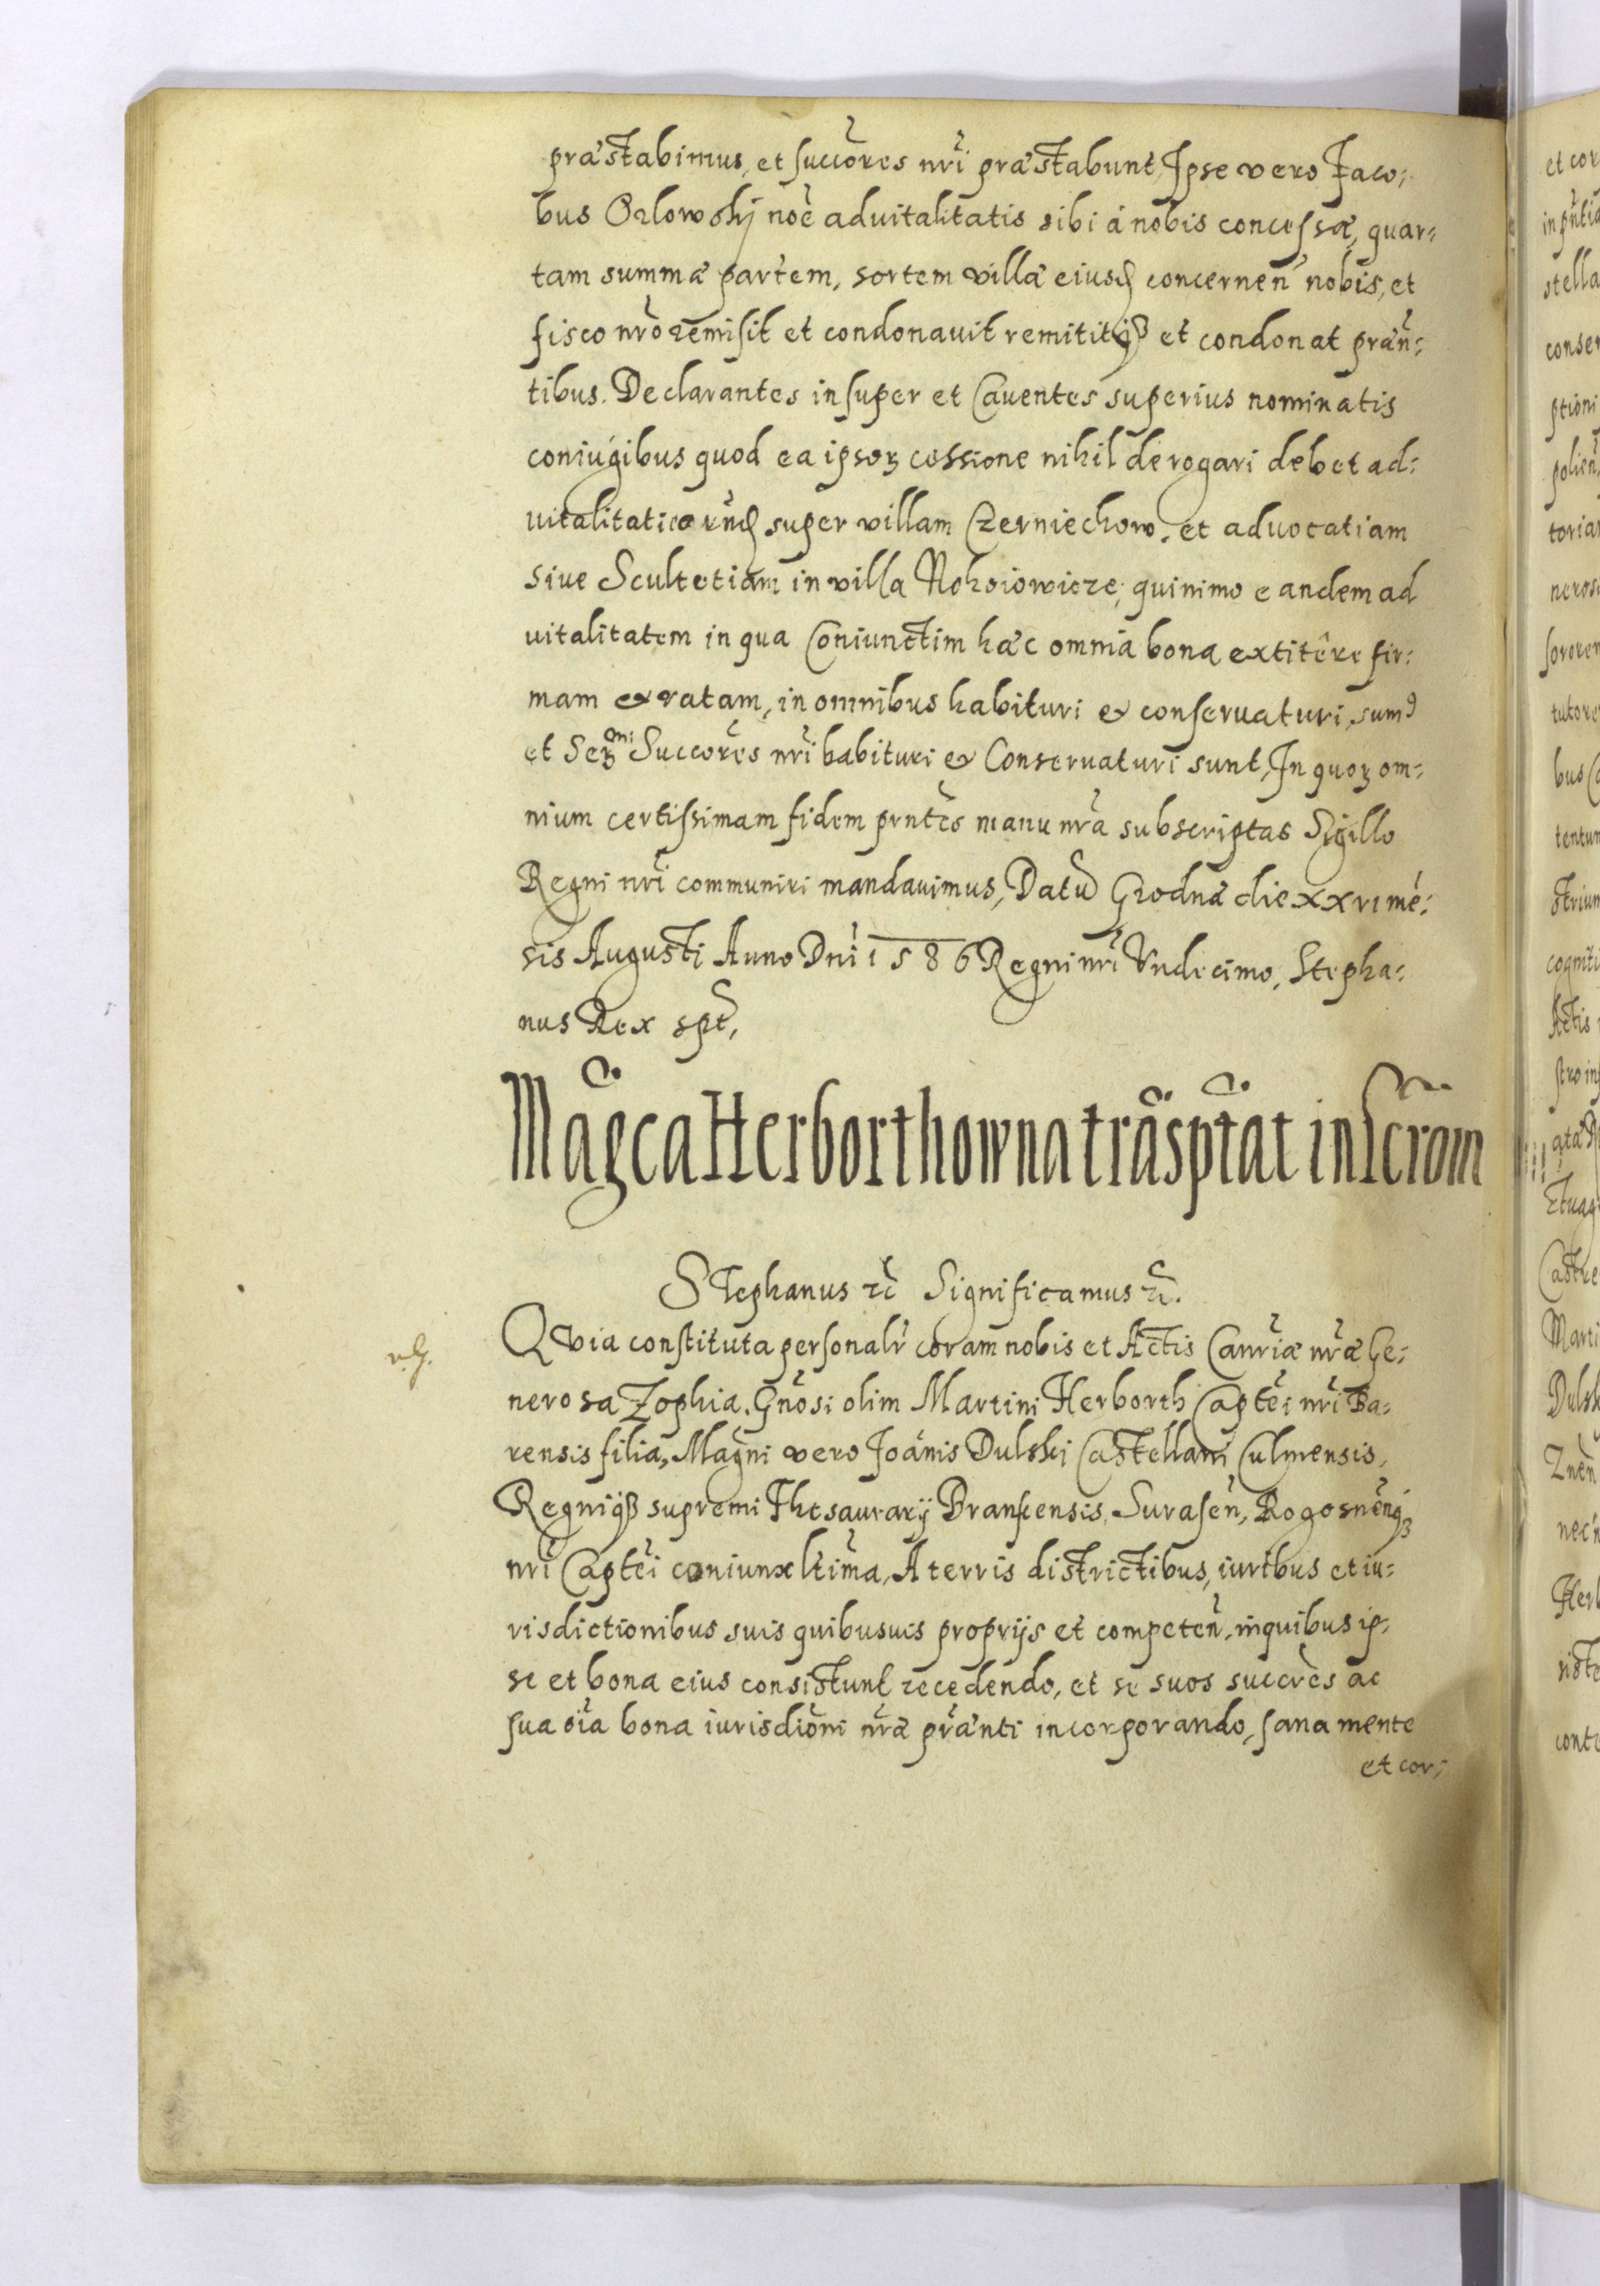 præstabimus, et succores nri præstabunt, Ipse vero Jaco-
bus Orlowskij noe aduitalitatis sibi á nobis concessæ, quar-
tam summæ partem, sortem villæ eiusd concernen nobis, et
fisco nro remisit et condonauit remititq et condonat præn-
tibus. Declarantes insuper et Cauentes superius nominatis
coniugibus quod ea ipsorꝫ cessione nihil derogari debet ad-
uitalitati eorund super villam Czerniechow. et aduocatiam
siue Scultetiam in villa Moksiowicze, quinimo eandem ad
uitalitatem in qua Coniunctim hæc omnia bona extitêre fir-
mam et ratam, in omnibus habituri et conseruaturi, sumꝰ
et Serꝫmi Succores nri habituri et Conseruaturi sunt, In quorꝫ om-
nium certissimam fidem prntes manu nra subscriptas Sigillo
Regni nri communiri mandauimus, Datu Grodnæ die xxvi mé-
sis Augusti Anno Dni 1586 Regni nri Vndecimo, Stepha-
nus Rex spt,
Magca Herborthowna trasptat inscrom
Stephanus etc Significamus etc.
Quia constituta personalr coram nobis et Actis Canriæ nræ Ge-
nerosa Zophia. Gnosi olim Martini Herborth Captei nri Ba-
rensis filia, Magni vero Joánis Dulski Castellani Culmensis,
Regniqꝫ supremi Thesaurarij Branscensis, Surasen, Rogosnenqꝫ
nri Captei coniunx ltima, A terris districtibus, iuribus et iu-
risdictionibus suis quibusuis proprijs et competen, in quibus ip-
se et bona eius consistunt recedendo, et se suos succres ac
sua oia bona iurisdioni nræ prænti incorporando, sana mente
et cor-